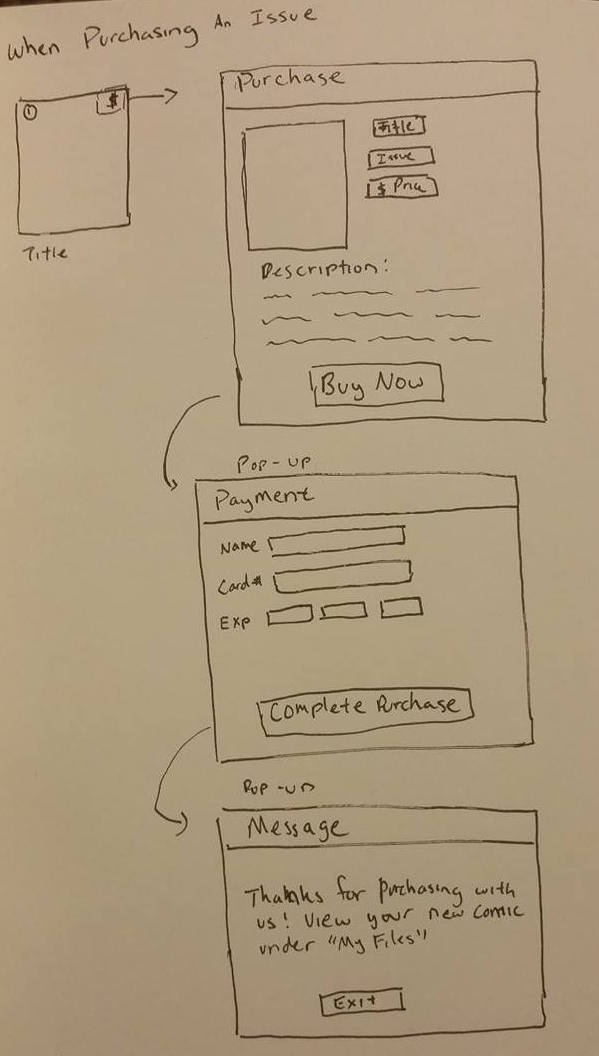 When Purchasing An Issue
$
Title
Purchase
Title
Issue
$ Price
Description:
Buy Now
Pop-up
Payment
Name
Card#
Exp
Complete Purchase
Pop-up
Message
Thanks for purchasing with
us! View your new comic
under "My Files"
Exit